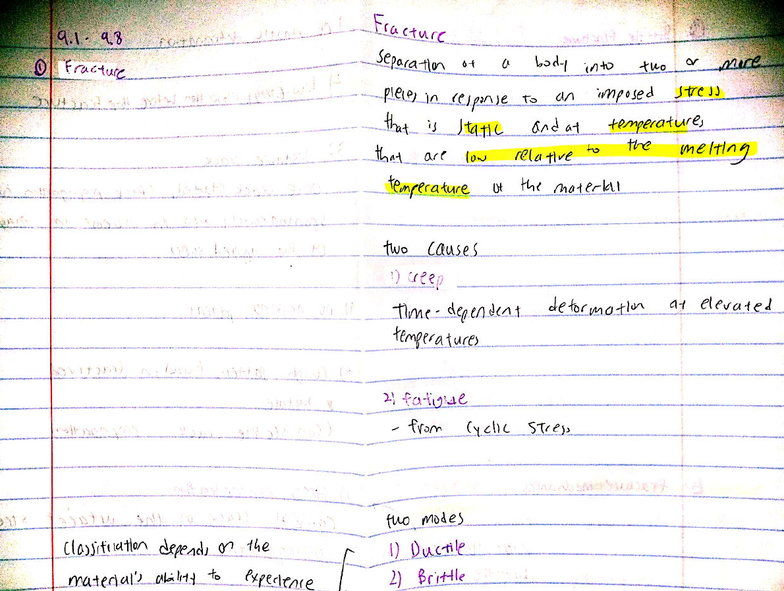 9.1 - 9.8
① Fracture
Fracture
Separation of a body into two or more
pieces in response to an imposed stress
that is static and at temperatures
that are low relative to the melting
temperature of the material
two causes
1) creep
Time-dependent deformation at elevated
temperatures
2) fatigue
- from cyclic stress
two modes
1) Ductile
2) Brittle
Classification depends on the
material's ability to experience